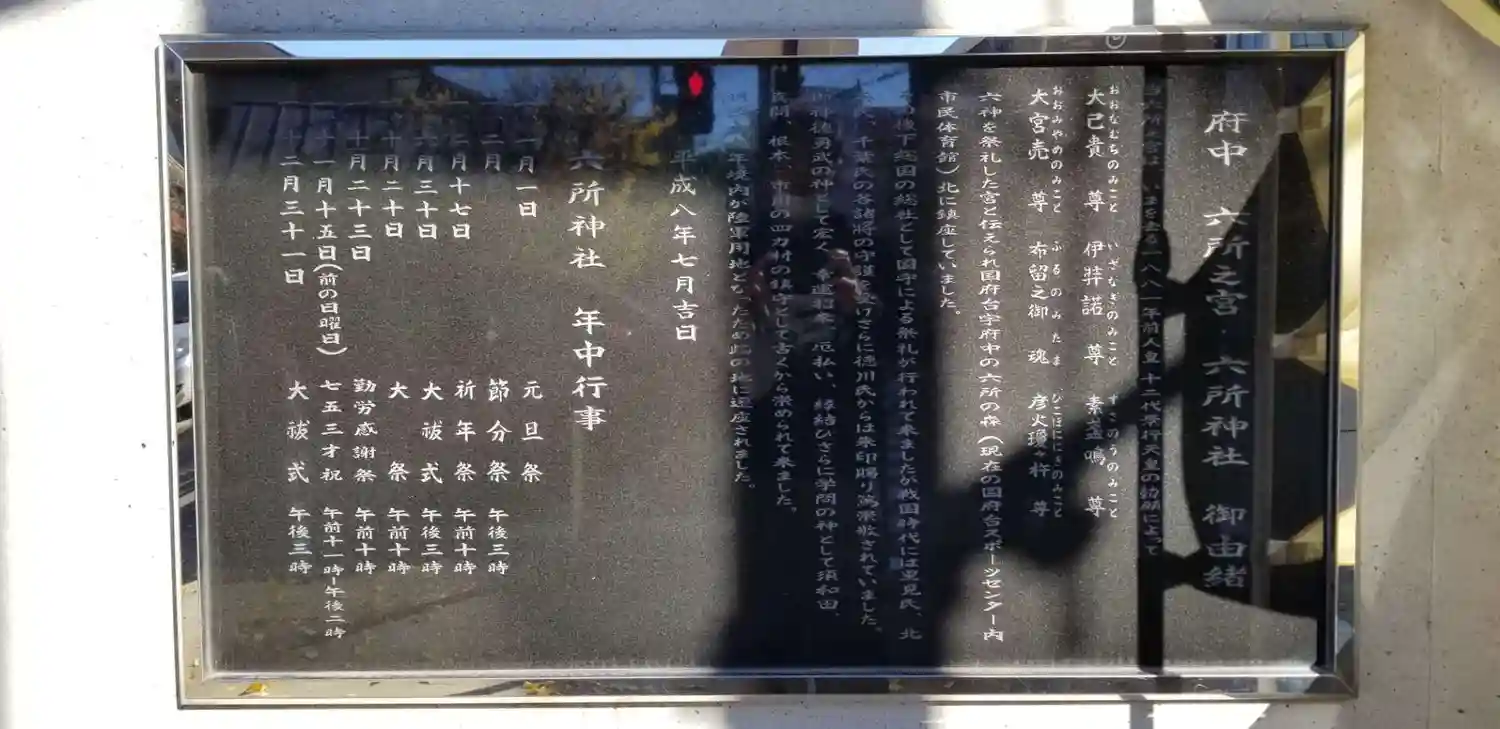 府中 六所之宮・六所神社 御由緒
六所之宮は、いまを去る一八八一年前人皇十二代景行天皇の勅願によって
おおなむちのみこと いざなぎのみこと すさのうのみこと
大己貴 尊 伊弉諾 尊 素盞鳴 尊
おおみやめのみこと ふるのみたま ひこほににぎのみこと
大宮売 尊 布留之御 魂 彦火瓊々杵 尊
六神を祭礼した宮と伝えられ国府台字府中の六所の森(現在の国府台スポーツセンター内
市民体育館)北に鎮座していました。
後下総国の総社として国守による祭礼が行われて来ましたが戦国時代には里見氏、北
千葉氏の各諸将の守護を受けさらに徳川氏からは朱印賜り篤崇敬されていました。
神徳勇武の神として宏く、幸運招来、厄払い、縁結びさらに学問の神として須和田、
真間、根本、市川の四カ村の鎮守として古くから崇められて来ました。
年境内が陸軍用地となったため此の地に遷座されました。
平成八年七月吉日
六所神社 年中行事
一月一日 元旦祭
二月 節分祭 午後三時
二月十七日 祈年祭 午前十時
六月三十日 大祓式 午後三時
十月二十日 大祭 午前十時
十一月二十三日 勤労感謝祭 午前十時
十一月十五日(前の日曜日) 七五三才祝 午前十一時-午後二時
十二月三十一日 大祓式 午後三時